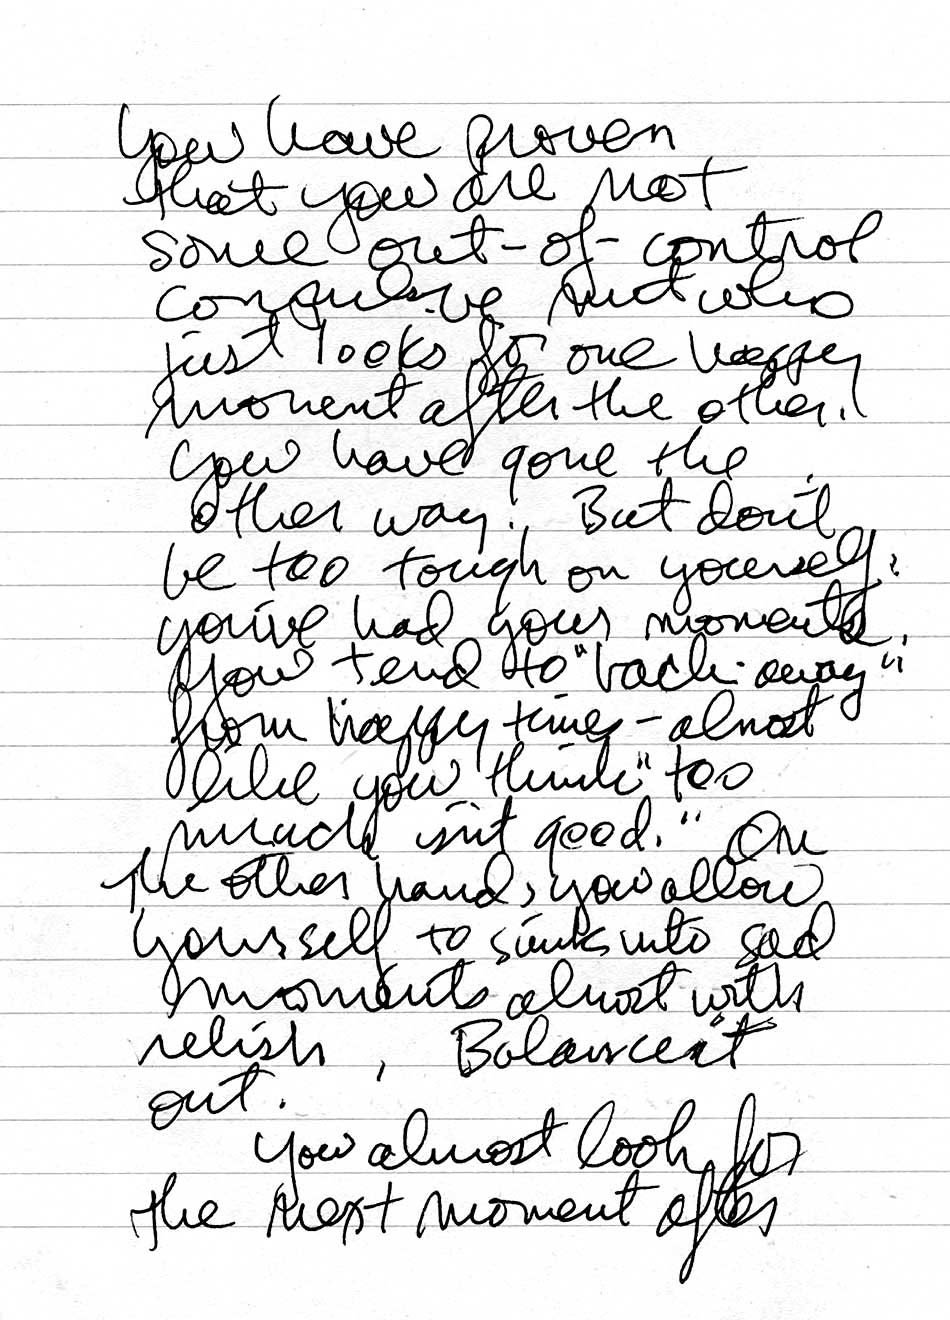 You have proven
that you are not
some out-of-control
compulsive nut who
just looks for one happy
moment after the other.
You have gone the
other way. But don't
be too tough on yourself:
you've had your moments.
You tend to "back-away"
from happy times - almost
like you think "too
much isn't good." On
the other hand, you allow
yourself to sink into sad
moments almost with
relish. Balance it
out.
You almost look for
the next moment after